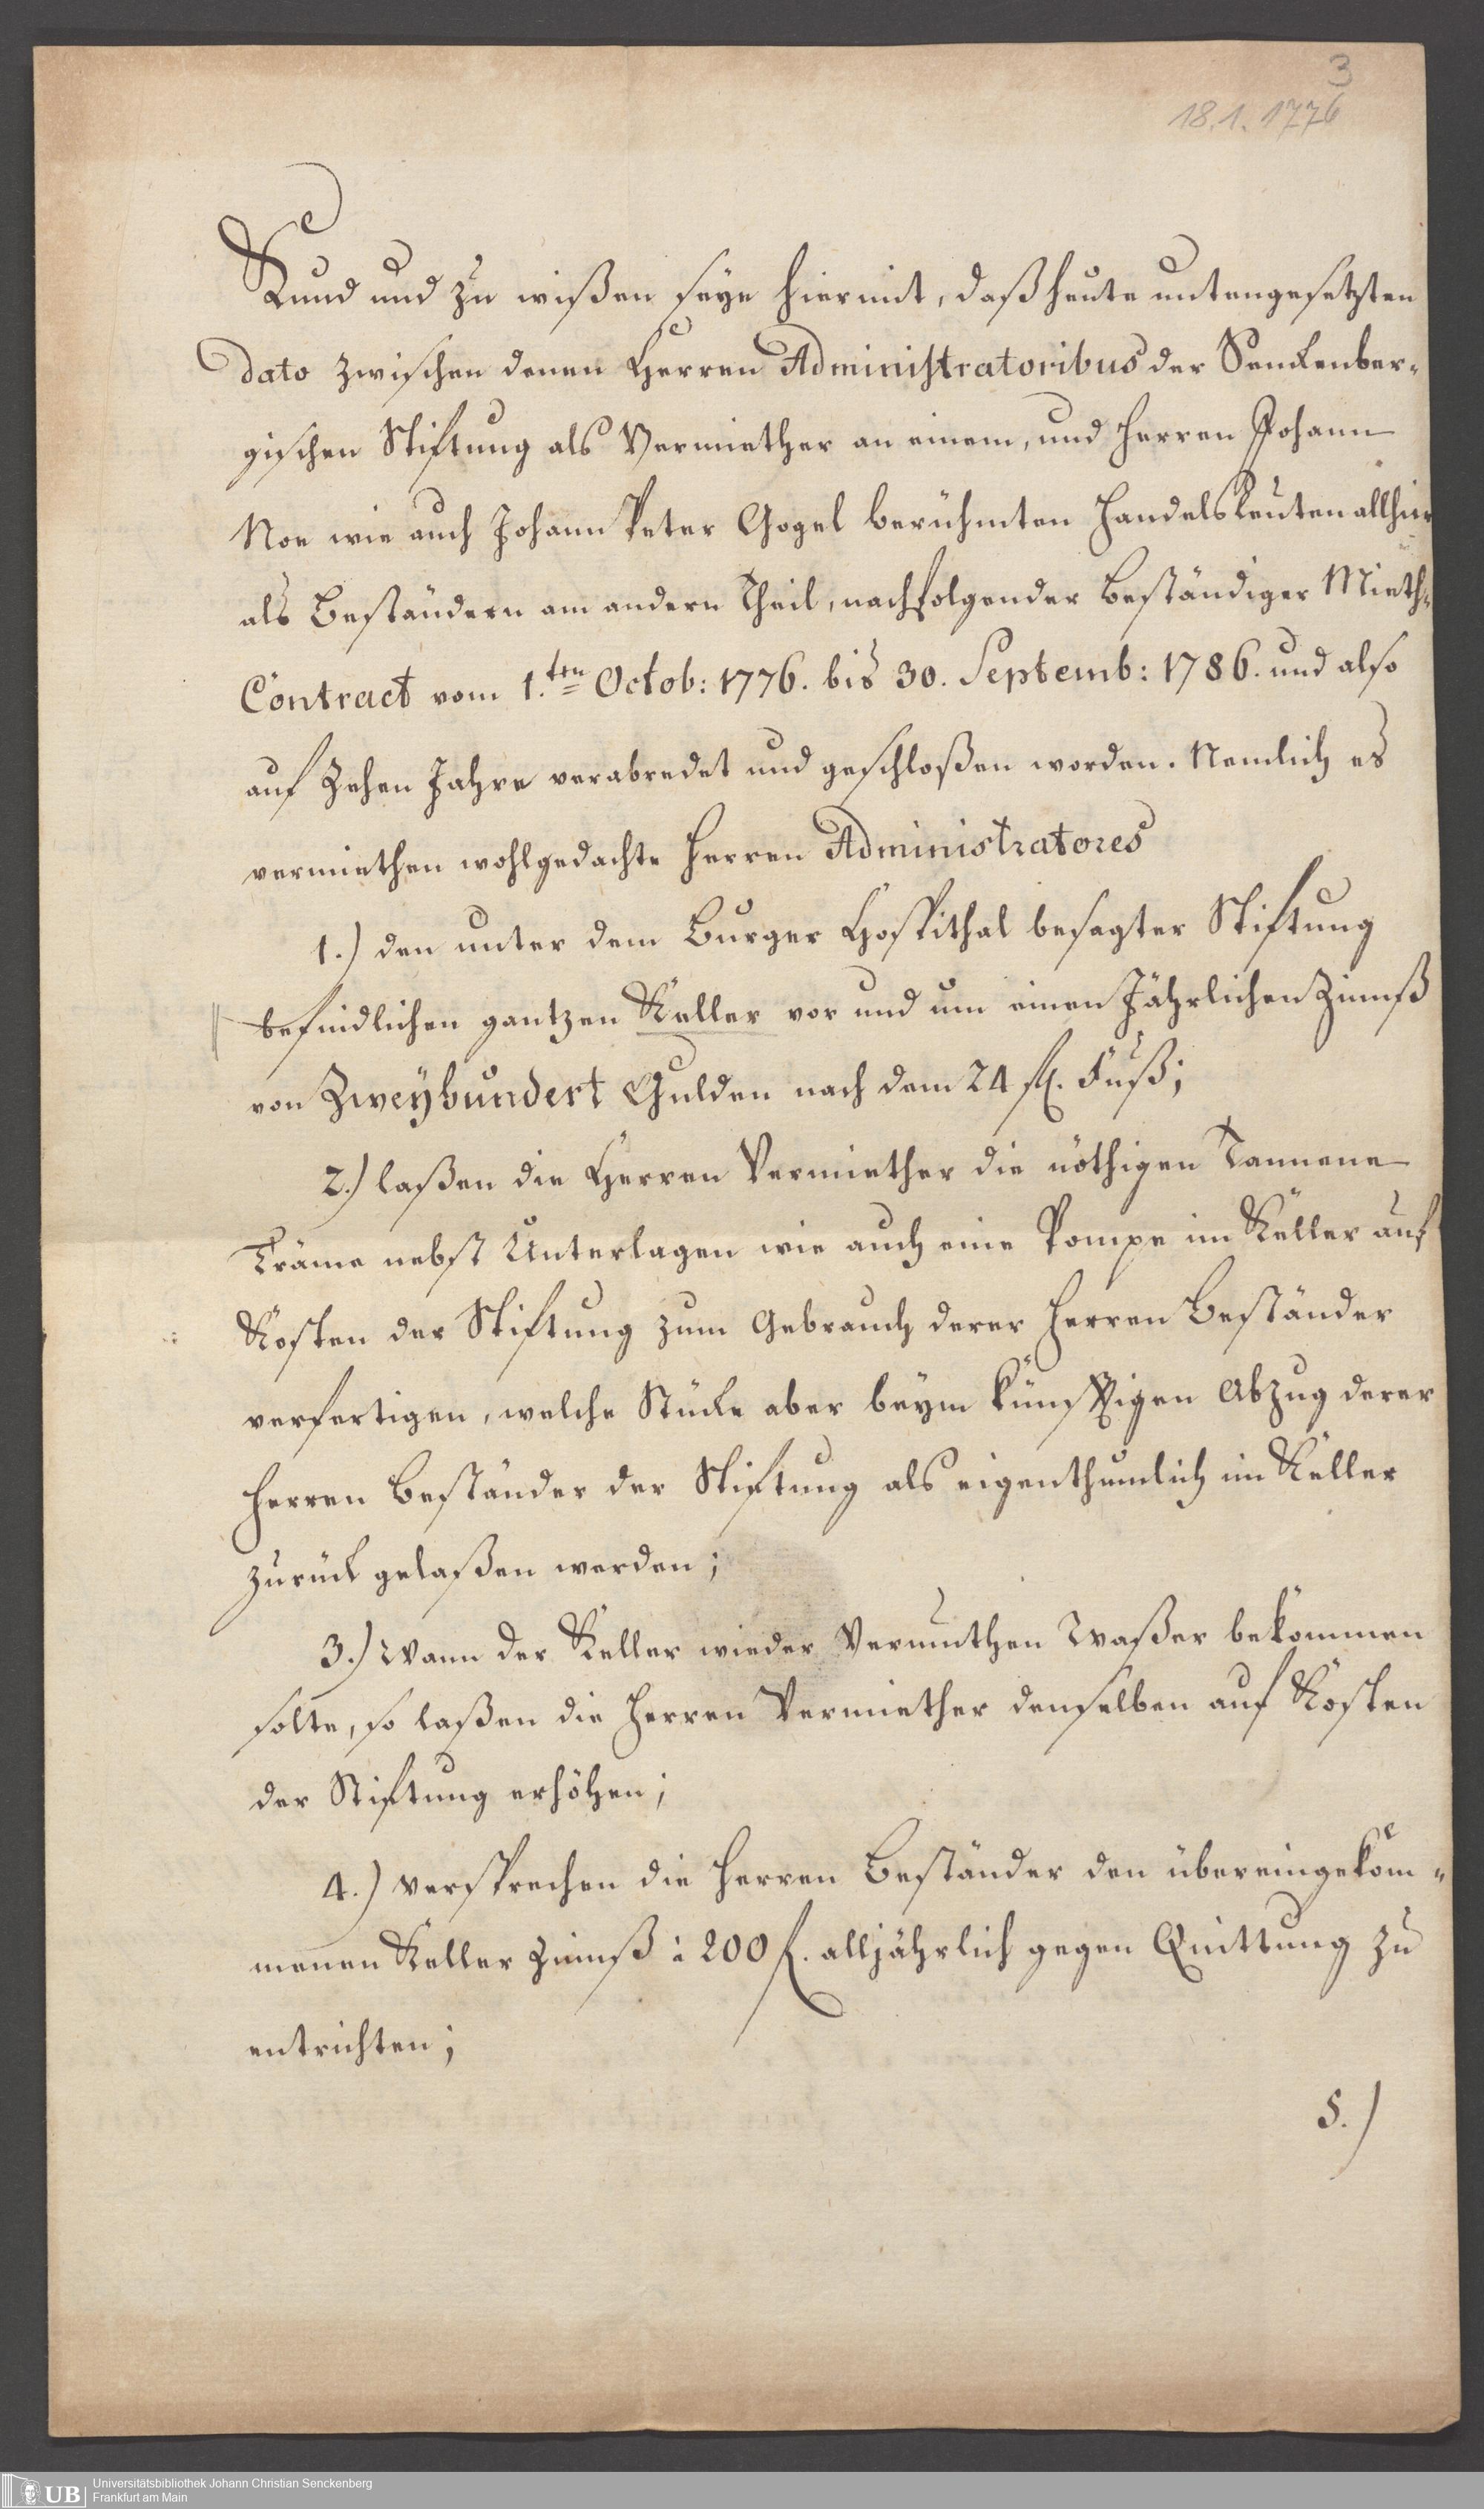 3
18.1.1776
Kund und zu wißen seye hiermit, daß heute untengesetzten
dato zwischen denen Herren Administratoribus der Senckenber-
gischen Stiftung als Vermiether an einem, und Herren Johann
Noe wie auch Johann Peter Gogel berühmten Handelsleuten allhier
als Beständern am andern Theil, nachfolgender beständiger Mieth-
Contract vom 1.ten Octob: 1776. bis 30. Septemb: 1786. und also
auf Zehen Jahre verabredet und geschloßen worden. Nemlich es
vermiethen wohlgedachte Herren Administratores
1.) den unter dem Burger Hospithal besagter Stiftung
befindlichen gantzen Keller vor und um einen Jährlichen Zinnß
von Zweyhundert Gulden nach dem 24 fl. Fuß;
2.) laßen die Herren Vermiether die nöthigen Tannene
Träme nebst Unterlagen wie auch eine Pompe im Keller auf
Kosten der Stiftung zum Gebrauch derer Herren Beständer
verfertigen, welche Stücke aber beym künfftigen Abzug derer
Herren Beständer der Stiftung als eigenthumlich im Keller
zurück gelaßen werden;
3.) Wann der Keller wieder Vermuthen Waßer bekommen
solte, so laßen die Herren Vermiether denselben auf Kosten
der Stiftung erhöhen;
4.) versprechen die Herren Beständer den übereingekom-
menen Keller Zinnß à 200 f. alljährlich gegen Quittung zu
entrichten;
5.)
UB
Universitätsbibliothek Johann Christian Senckenberg
Frankfurt am Main